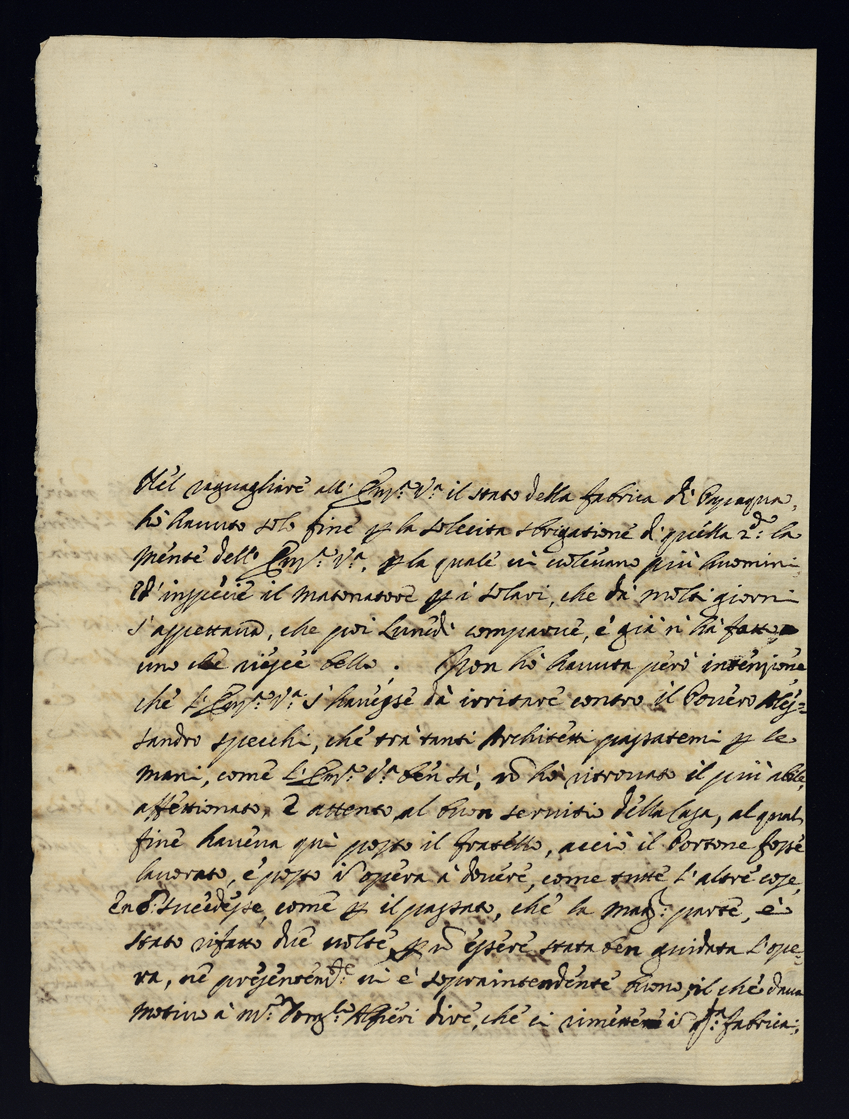 Nel raguagliare all' Em.ª V.ª il stato della fabrica di
hò havuto solo fine p la sollecita sbrigatione di quella 2.ª: la
mente dell' Em.ª V.ª, p la quale vi volevano più huomini
ed' inspecie il Matonatore p i solari, che dà molti giorni
s' aspettava, che poi Lunedì comparve, e già n' hà fatto
uno che riesce bello. Non hò havuta però intenzione
che l' Em.ª V.ª s' havesse dà irritare contro il Povero Ales=
sandro specchi, che trà tanti Architetti passatemi p le
mani, come l' Em.ª V.ª ben sà, nō hò ritrovato il più abile,
affettionato, e attento al buon servitio della Casa, al qual
fine haveva quì posto il fratello, acciò il Portone fosse
lavorato, e posto ī opera à dovere, come tutte l' altre cose,
e nō succedesse, come p il passato, che la mag.ʳ parte, è
stato rifatto due volte, p nō essere stata ben guidata l' ope=
ra, ne presentem.ᵗᵉ vi è sopraintendente buono, il che dava
motivo à m.ʳ Alfieri dire, che ci rimettere ī q.ᵗᵃ fabrica;